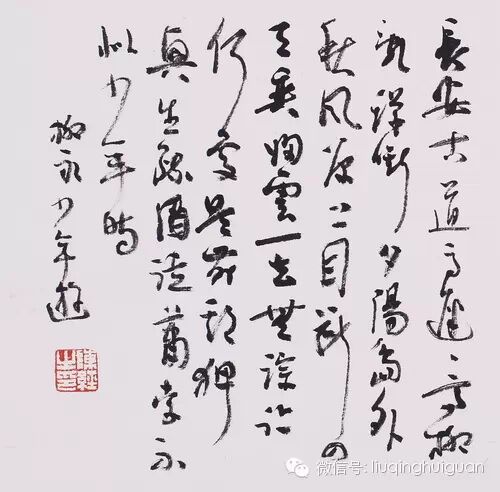 長安古道马遲遲高柳
乱蟬嘶夕陽島外
秋风原上目断四
天垂归雲一去無踪迹
何處是前期狎
興生疏酒徒蕭索不
似少年時
柳永少年遊
微信号: liuqinghuiguan